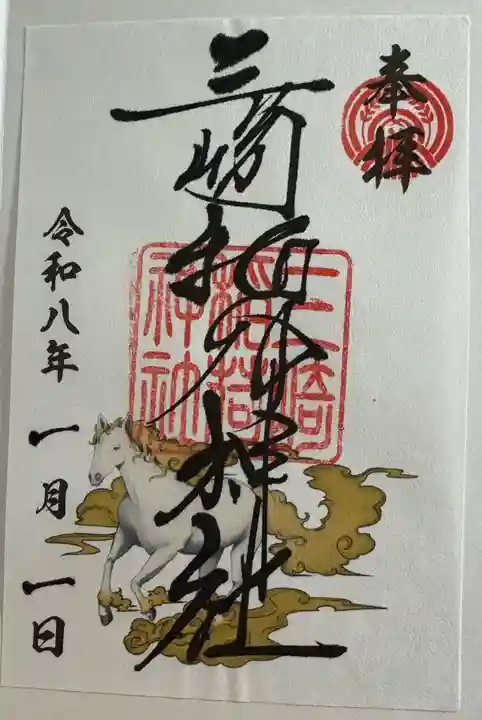 奉拝
三崎稲荷神社
三崎
稲荷
神社
令和八年 一月 一日